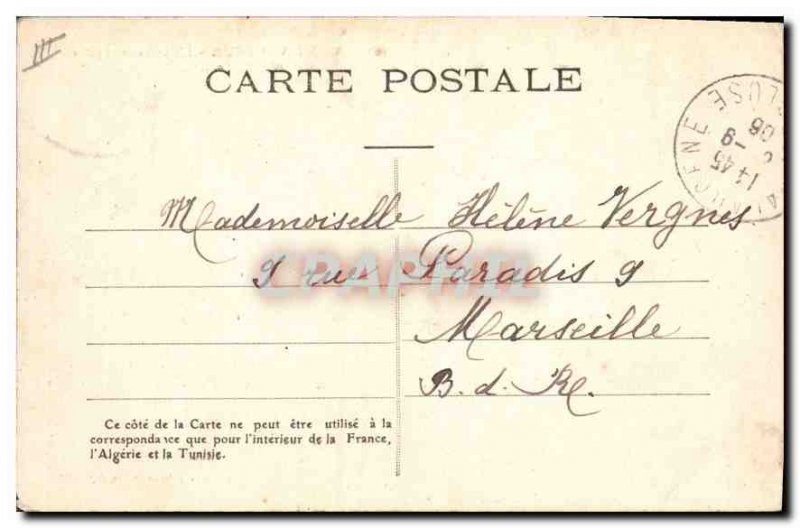 III
CARTE POSTALE
14 45
9
08
Mademoiselle Hélène Vergnes
9 rue Paradis 9
Marseille
B. d. R.
CPAPHIL
Ce côté de la Carte ne peut être utilisé à la
correspondance que pour l'intérieur de la France,
l'Algérie et la Tunisie.